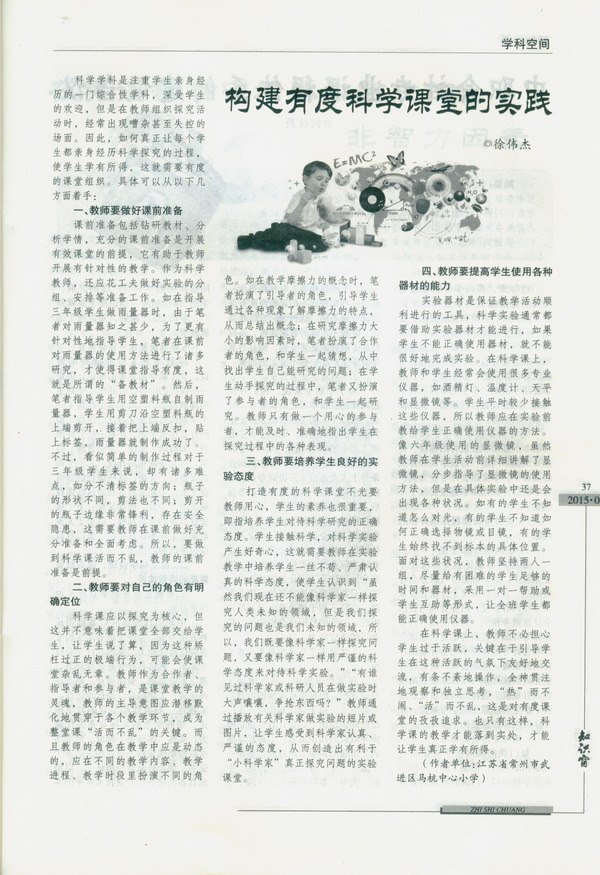 学科空间
构建有度科学课堂的实践
©徐伟杰
E=MC²
科学学科是注重学生亲身经
历的一门综合性学科，深受学生
的欢迎，但是在教师组织探究活
动时，经常出现嘈杂甚至失控的
场面。因此，如何真正让每个学
生都亲身经历科学探究的过程，
使学生学有所得，这就需要有度
的课堂组织。具体可以从以下几
方面着手：
一、教师要做好课前准备
课前准备包括钻研教材、分
析学情，充分的课前准备是开展
有效课堂的前提，它有助于教师
开展有针对性的教学。作为科学
教师，还应花工夫做好实验的分
组、安排等准备工作。如在指导
三年级学生做雨量器时，由于笔
者对雨量器知之甚少，为了更有
针对性地指导学生，笔者在课前
对雨量器的使用方法进行了诸多
研究，才使得课堂指导有度，这
就是所谓的“备教材”。然后，
笔者指导学生用空塑料瓶自制雨
量器，学生用剪刀沿空塑料瓶的
上端剪开，接着把上端反扣，贴
上标签，雨量器就制作成功了。
不过，看似简单的制作过程对于
三年级学生来说，却有诸多难
点，如分不清标签的方向；瓶子
的形状不同，剪法也不同；剪开
的瓶子边缘非常锋利，存在安全
隐患，这需要教师在课前做好充
分准备和全面考虑。所以，要做
到科学课活而不乱，教师的课前
准备是前提。
二、教师要对自己的角色有明
确定位
科学课应以探究为核心，但
这并不意味着把课堂全部交给学
生，让学生说了算，因为这种矫
枉过正的极端行为，可能会使课
堂杂乱无章。教师作为合作者、
指导者和参与者，是课堂教学的
灵魂，教师的主导意图应潜移默
化地贯穿于各个教学环节，成为
整堂课“活而不乱”的关键。而
且教师的角色在教学中应是动态
的，应在不同的教学内容、教学
进程、教学时段里扮演不同的角
色。如在教学摩擦力的概念时，笔
者扮演了引导者的角色，引导学生
通过各种现象了解摩擦力的特点，
从而总结出概念；在研究摩擦力大
小的影响因素时，笔者扮演了合作
者的角色，和学生一起猜想，从中
找出学生自己能研究的问题；在学
生动手探究的过程中，笔者又扮演
了参与者的角色，和学生一起研
究。教师只有做一个用心的参与
者，才能及时、准确地指出学生在
探究过程中的各种表现。
三、教师要培养学生良好的实
验态度
打造有度的科学课堂不光要
教师用心，学生的素养也很重要，
即指培养学生对待科学研究的正确
态度。学生接触科学，对科学实验
产生好奇心，这就需要教师在实验
教学中培养学生一丝不苟、严肃认
真的科学态度，使学生认识到“虽
然我们现在还不能像科学家一样探
究人类未知的领域，但是我们探
究的问题也是我们未知的领域，所
以，我们既要像科学家一样探究问
题，又要像科学家一样用严谨的科
学态度来对待科学实验。”“有谁
见过科学家或科研人员在做实验时
大声嚷嚷，争抢东西吗？”教师通
过播放有关科学家做实验的短片或
图片，让学生感受到科学家认真、
严谨的态度，从而创造出有利于
“小科学家”真正探究问题的实验
课堂。
四、教师要提高学生使用各种
器材的能力
实验器材是保证教学活动顺
利进行的工具，科学实验通常都
要借助实验器材才能进行，如果
学生不能正确使用器材，就不能
很好地完成实验。在科学课上，
教师和学生经常会使用很多专业
仪器，如酒精灯、温度计、天平
和显微镜等。学生平时较少接触
这些仪器，所以教师应在实验前
教给学生正确使用仪器的方法。
像六年级使用的显微镜，虽然
教师在学生活动前详细讲解了显
微镜，分步指导了显微镜的使用
方法，但是在具体实验中还是会
出现各种状况。如有的学生不知
道怎么对光，有的学生不知道如
何正确选择物镜或目镜，有的学
生始终找不到标本的具体位置。
面对这些状况，教师坚持两人一
组，尽量给有困难的学生足够的
时间和器材，采用一对一帮助或
学生互助等形式，让全班学生都
能正确使用仪器。
在科学课上，教师不必担心
学生过于活跃，关键在于引导学
生在这种活跃的气氛下友好地交
流，有条不紊地操作，全神贯注
地观察和独立思考，“热”而不
闹、“活”而不乱，这是对有度课
堂的孜孜追求。也只有这样，科
学课的教学才能落到实处，才能
让学生真正学有所得。
（作者单位：江苏省常州市武
进区马杭中心小学）
37
2015·0
知识窗
ZHI SHI CHUANG